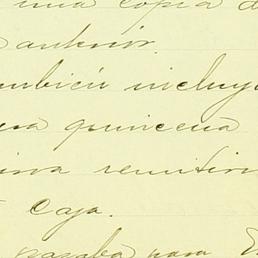 una copia d
anterior.
ambien incluy
era quincena
sirva remitir
caja.
pasaba para E